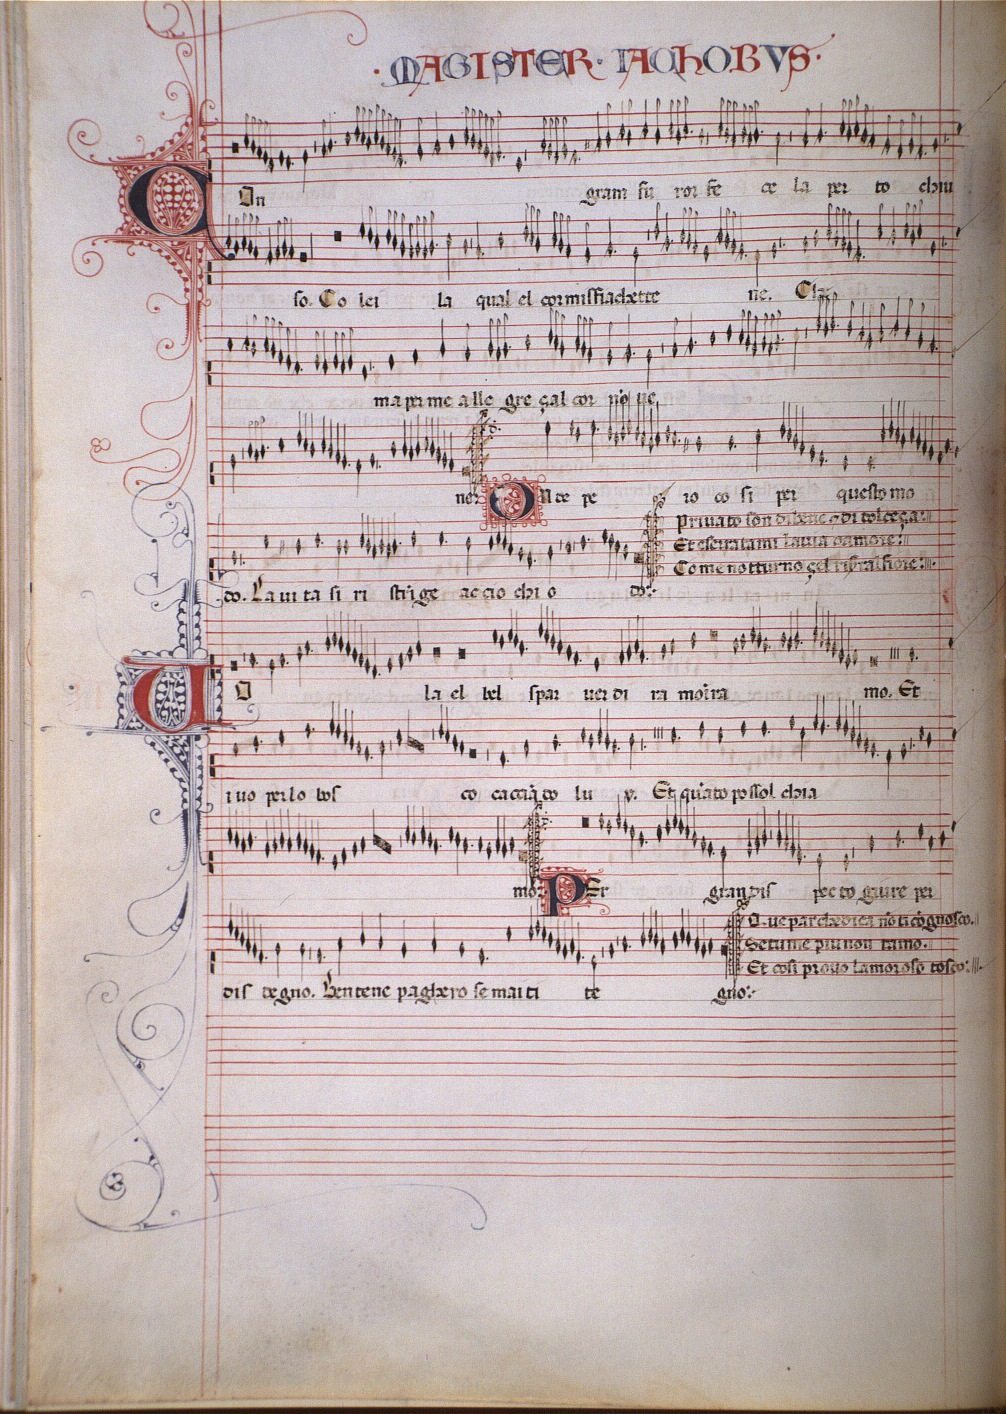 MAGISTER · IACHOBVS ·
COn gram fu ror fe ce la per to chiu
so. Co lei la qual el cor missiachette ne. Cla
ma per me alle gre çal cor no ve
ner COn te pe ro co si per questo mo
Privato son di bene e di dolceça.
Et eserratami la via d amore:
Come notturno çel
do. La vi ta si ri strige ac cio chi o do:
VO la el bel spar ver di ra mo i ra mo. Et
i vo per lo bos co caccia co lu y. Et quato possol chia
mo: PEr gran dis pec to guire per
O ve par che dica no ti cognosco.
Se tu me piu non tamo.
Et cosi provo lamoroso tosco:
dis degno. Ben tene paghero se mai ti te gno: